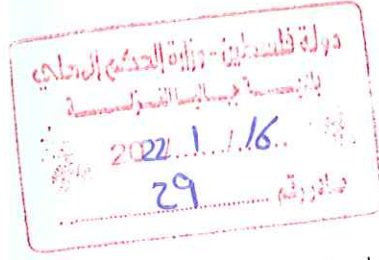 دولة فلسطين - وزارة الحكم المحلي
2022 / 1 / 16
صادر رقم 29